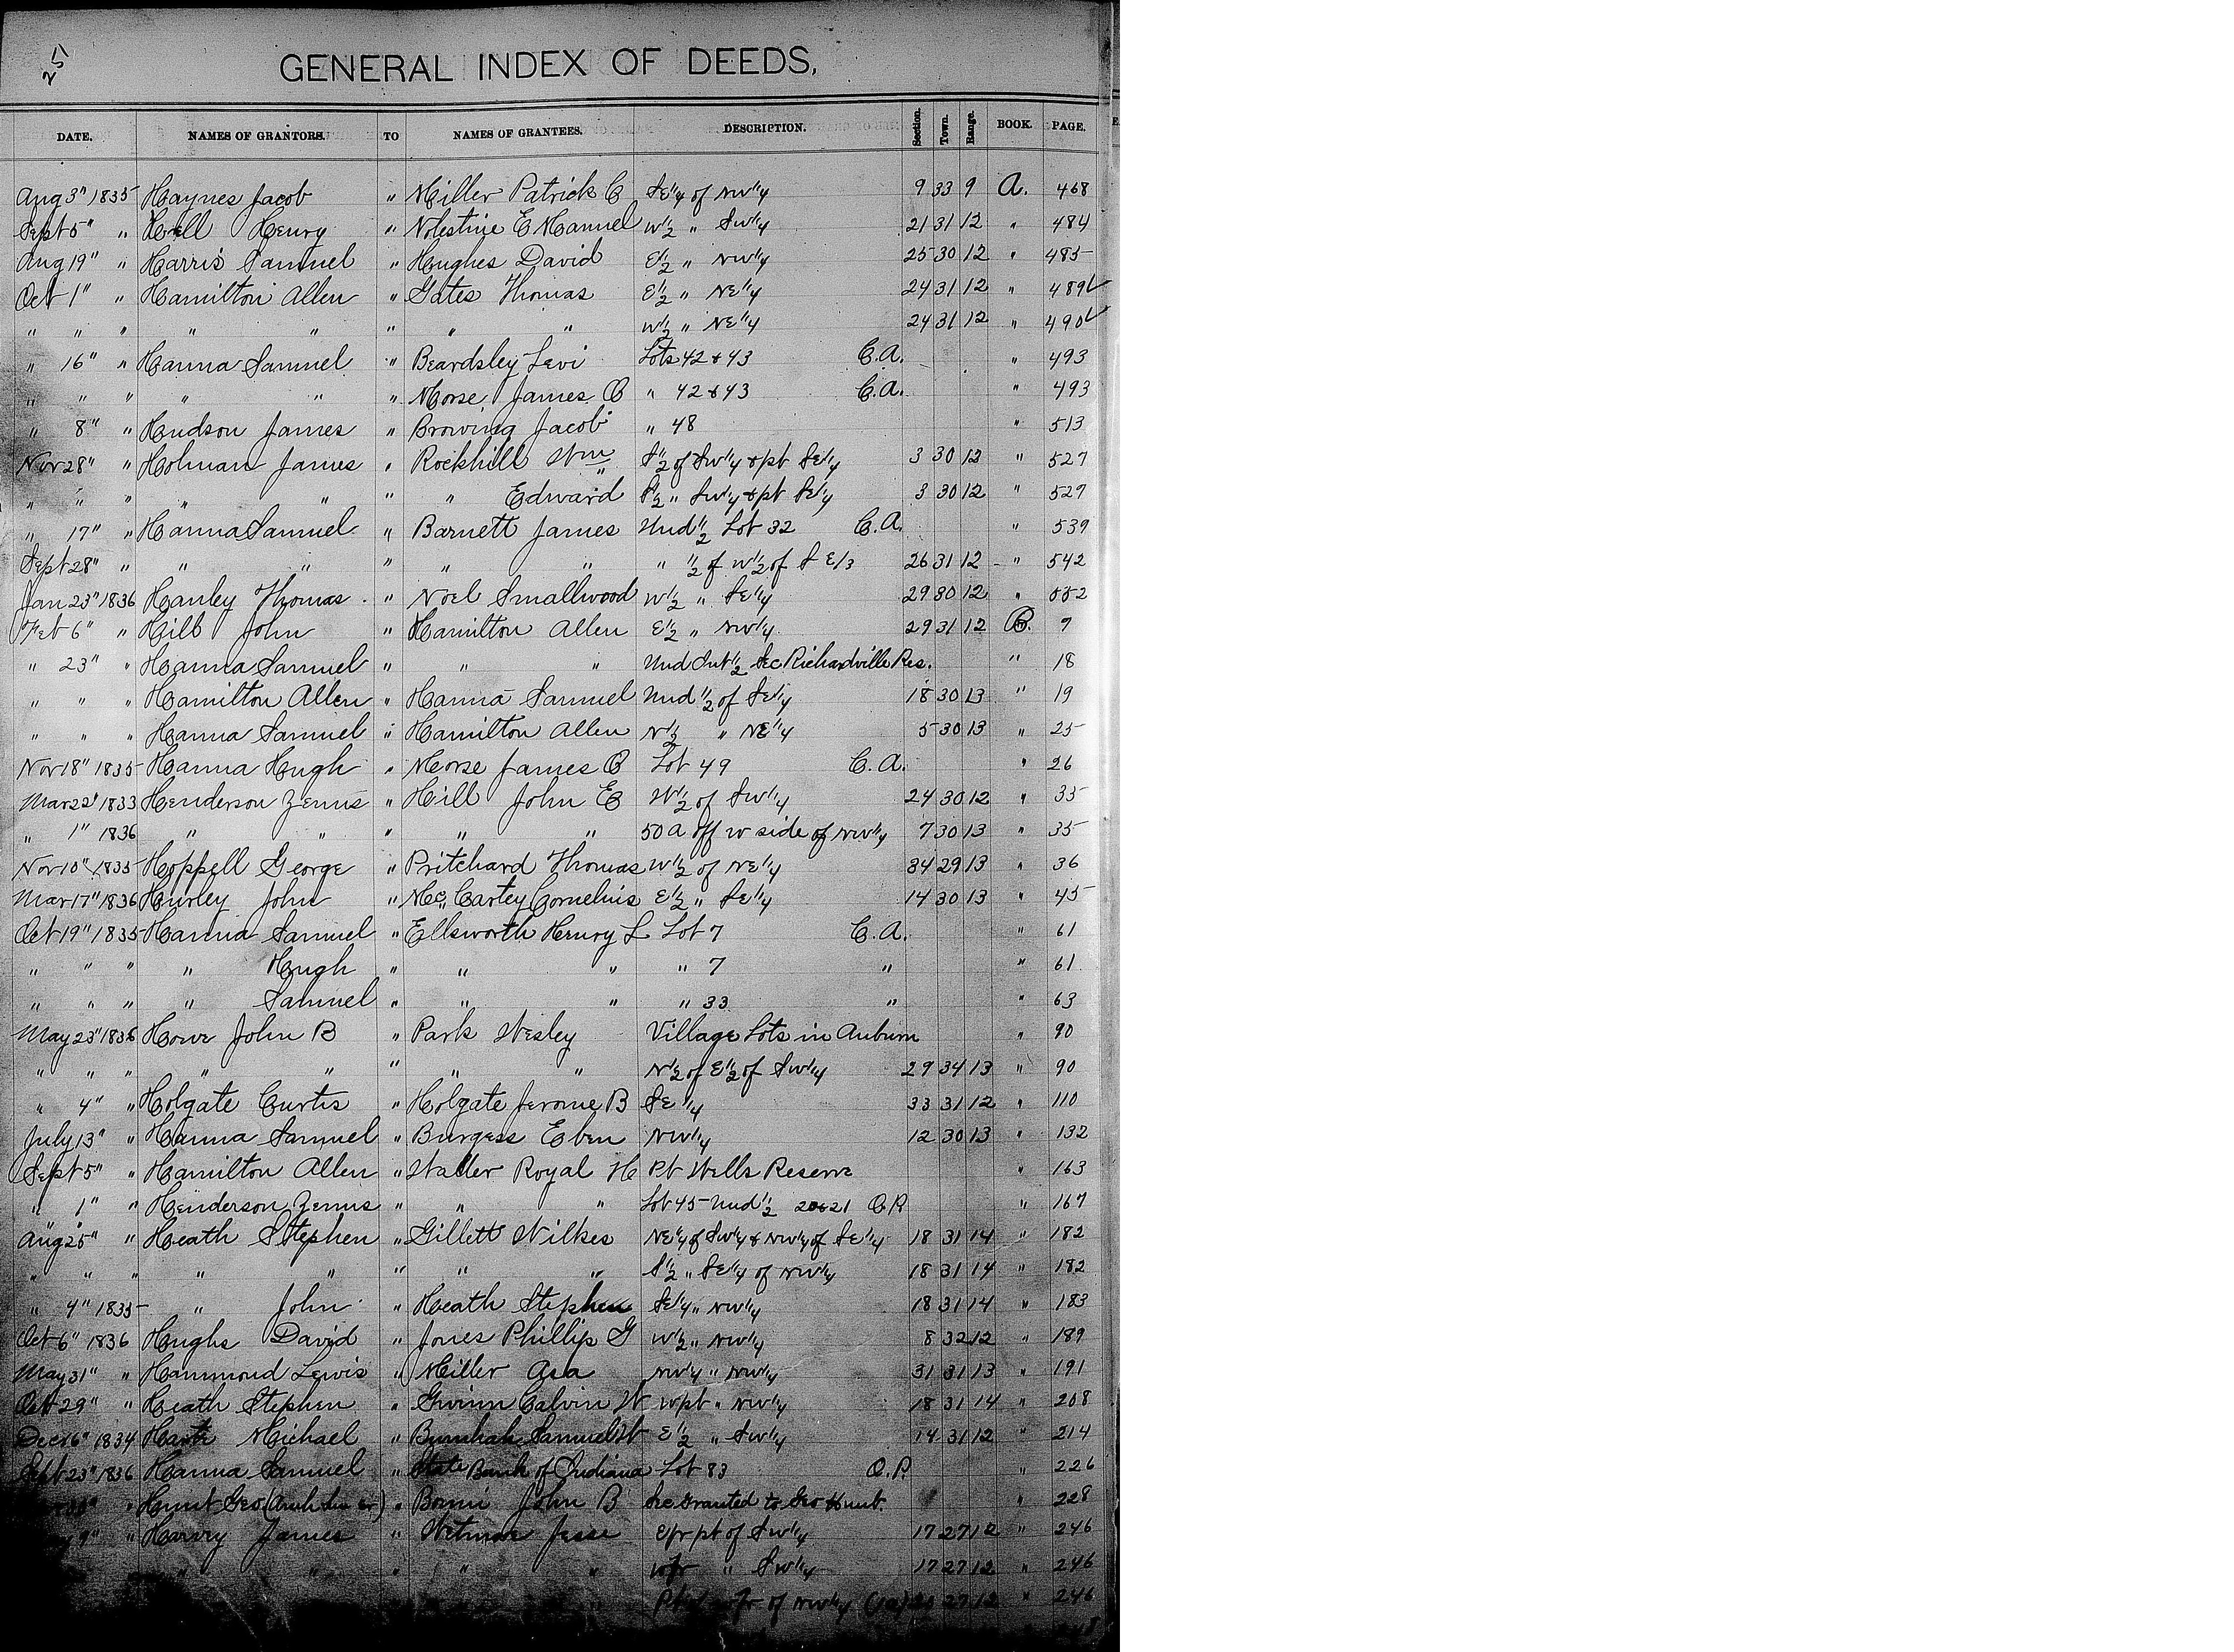 251
GENERAL INDEX OF DEEDS,
DATE. NAMES OF GRANTORS. TO NAMES OF GRANTEES. DESCRIPTION. Section. Town. Range. BOOK. PAGE.
Aug 3" 1835 Haynes Jacob " Miller Patrick C SE 1/4 of NW 1/4 9 33 9 A. 468
Sept 5" " Hell Henry " Nolestine E Manuel W 1/2 " SW 1/4 21 31 12 " 484
Aug 19" " Harris Samuel " Hughes David E 1/2 " NW 1/4 25 30 12 " 485
Oct 1" " Hamilton Allen " Gates Thomas E 1/2 " NE 1/4 24 31 12 " 489
" " " " " " " " W 1/2 " NE 1/4 24 31 12 " 490
" 16" " Hanna Samuel " Beardsley Levi Lots 42 & 43 C.A. " 493
" " " " " " Morse James B " 42 & 43 C.A. " 493
" 8" " Hudson James " Browing Jacob " 48 " 513
Nov 28" " Holman James " Rockhill Wm S 1/2 of SW 1/4 & pt SE 1/4 3 30 12 " 527
" " " " " " " Edward S 1/2 " SW 1/4 & pt SE 1/4 3 30 12 " 527
" 17" " Hanna Samuel " Barnett James Und 1/2 Lot 32 C.A. " 539
Sept 28" " " " " " " " 1/2 of W 1/2 of S E/3 26 31 12 " 542
Jan 23" 1836 Hanley Thomas " Noel Smallwood W 1/2 " SE 1/4 29 30 12 " 552
Feb 6" " Hill John " Hamilton Allen E 1/2 " NW 1/4 29 31 12 B. 7
" 23" " Hanna Samuel " " " Und Int 1/2 Sec Richardville Res. " 18
" " " Hamilton Allen " Hanna Samuel Und 1/2 of SE 1/4 18 30 13 " 19
" " " Hanna Samuel " Hamilton Allen N 1/2 " NE 1/4 5 30 13 " 25
Nov 18" 1835 Hanna Hugh " Morse James B Lot 49 C.A. " 26
Mar 22" 1833 Henderson Zenus " Hill John E W 1/2 of SW 1/4 24 30 12 " 35
" 1" 1836 " " " " " 50 a off W side of NW 1/4 7 30 13 " 35
Nov 10" 1835 Hoppell George " Pritchard Thomas W 1/2 of NE 1/4 34 29 13 " 36
Mar 17" 1836 Hurley John " McCartey Cornelius E 1/2 " SE 1/4 14 30 13 " 45
Oct 19" 1835 Hanna Samuel " Ellsworth Henry L Lot 7 C.A. " 61
" " " " Hugh " " " " 7 " " 61
" " " " Samuel " " " " 33 " " 63
May 23" 1836 Howe John B " Park Wesley Village Lots in Auburn " 90
" " " " " " " " N 1/2 of E 1/2 of SW 1/4 29 34 13 " 90
" 4" " Holgate Curtis " Holgate Jerome B SE 1/4 33 31 12 " 110
July 13" " Hanna Samuel " Burgess Eben NW 1/4 12 30 13 " 132
Sept 5" " Hamilton Allen " Waller Royal H Pt Wells Reserve " 163
" 1" " Henderson Zenus " " " Lot 45 Und 1/2 20 & 21 O.P. " 167
Aug 25" " Heath Stephen " Gillett Wilkes NE 1/4 of SW 1/4 & NW 1/4 of SE 1/4 18 31 14 " 182
" " " " " " " " S 1/2 " SE 1/4 of NW 1/4 18 31 14 " 182
" 4" 1835 " John " Heath Stephen SE 1/4 " NW 1/4 18 31 14 " 183
Oct 6" 1836 Hughs David " Jones Phillip G W 1/2 " NW 1/4 8 32 12 " 189
May 31" " Hammond Lewis " Miller Asa NW 1/4 " NW 1/4 31 31 13 " 191
Oct 29" " Heath Stephen " Gwinn Calvin W W pt " NW 1/4 18 31 14 " 208
Dec 16" 1834 Michael " Samuel W E 1/2 " SW 1/4 14 31 12 " 214
Sept 23" 1836 Hanna Samuel " State Bank of Indiana Lot 83 O.P. " 226
" Hunt Geo " John B Sec Granted to Geo Hunt " 228
9" " Harvey James " Jesse E fr pt of SW 1/4 17 27 12 " 246
" " " " " W fr " SW 1/4 17 27 12 " 246
fr of NW 1/4 27 12 " 246